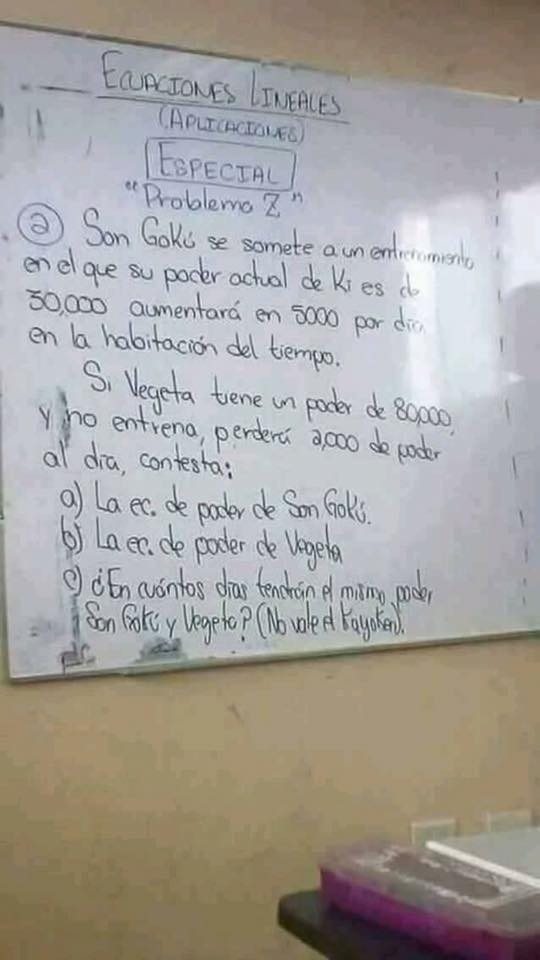 ECUACIONES LINEALES
(APLICACIONES)
ESPECIAL
"Problema Z"
② Son Gokú se somete a un entrenamiento
en el que su poder actual de Ki es de
30,000 aumentará en 5000 por día
en la habitación del tiempo.
Si Vegeta tiene un poder de 80,000,
y no entrena, perderá 2,000 de poder
al día, contesta:
a) La ec. de poder de Son Gokú.
b) La ec. de poder de Vegeta
c) ¿En cuántos días tendrán el mismo poder
Son Gokú y Vegeta? (No vale el Kayoken).